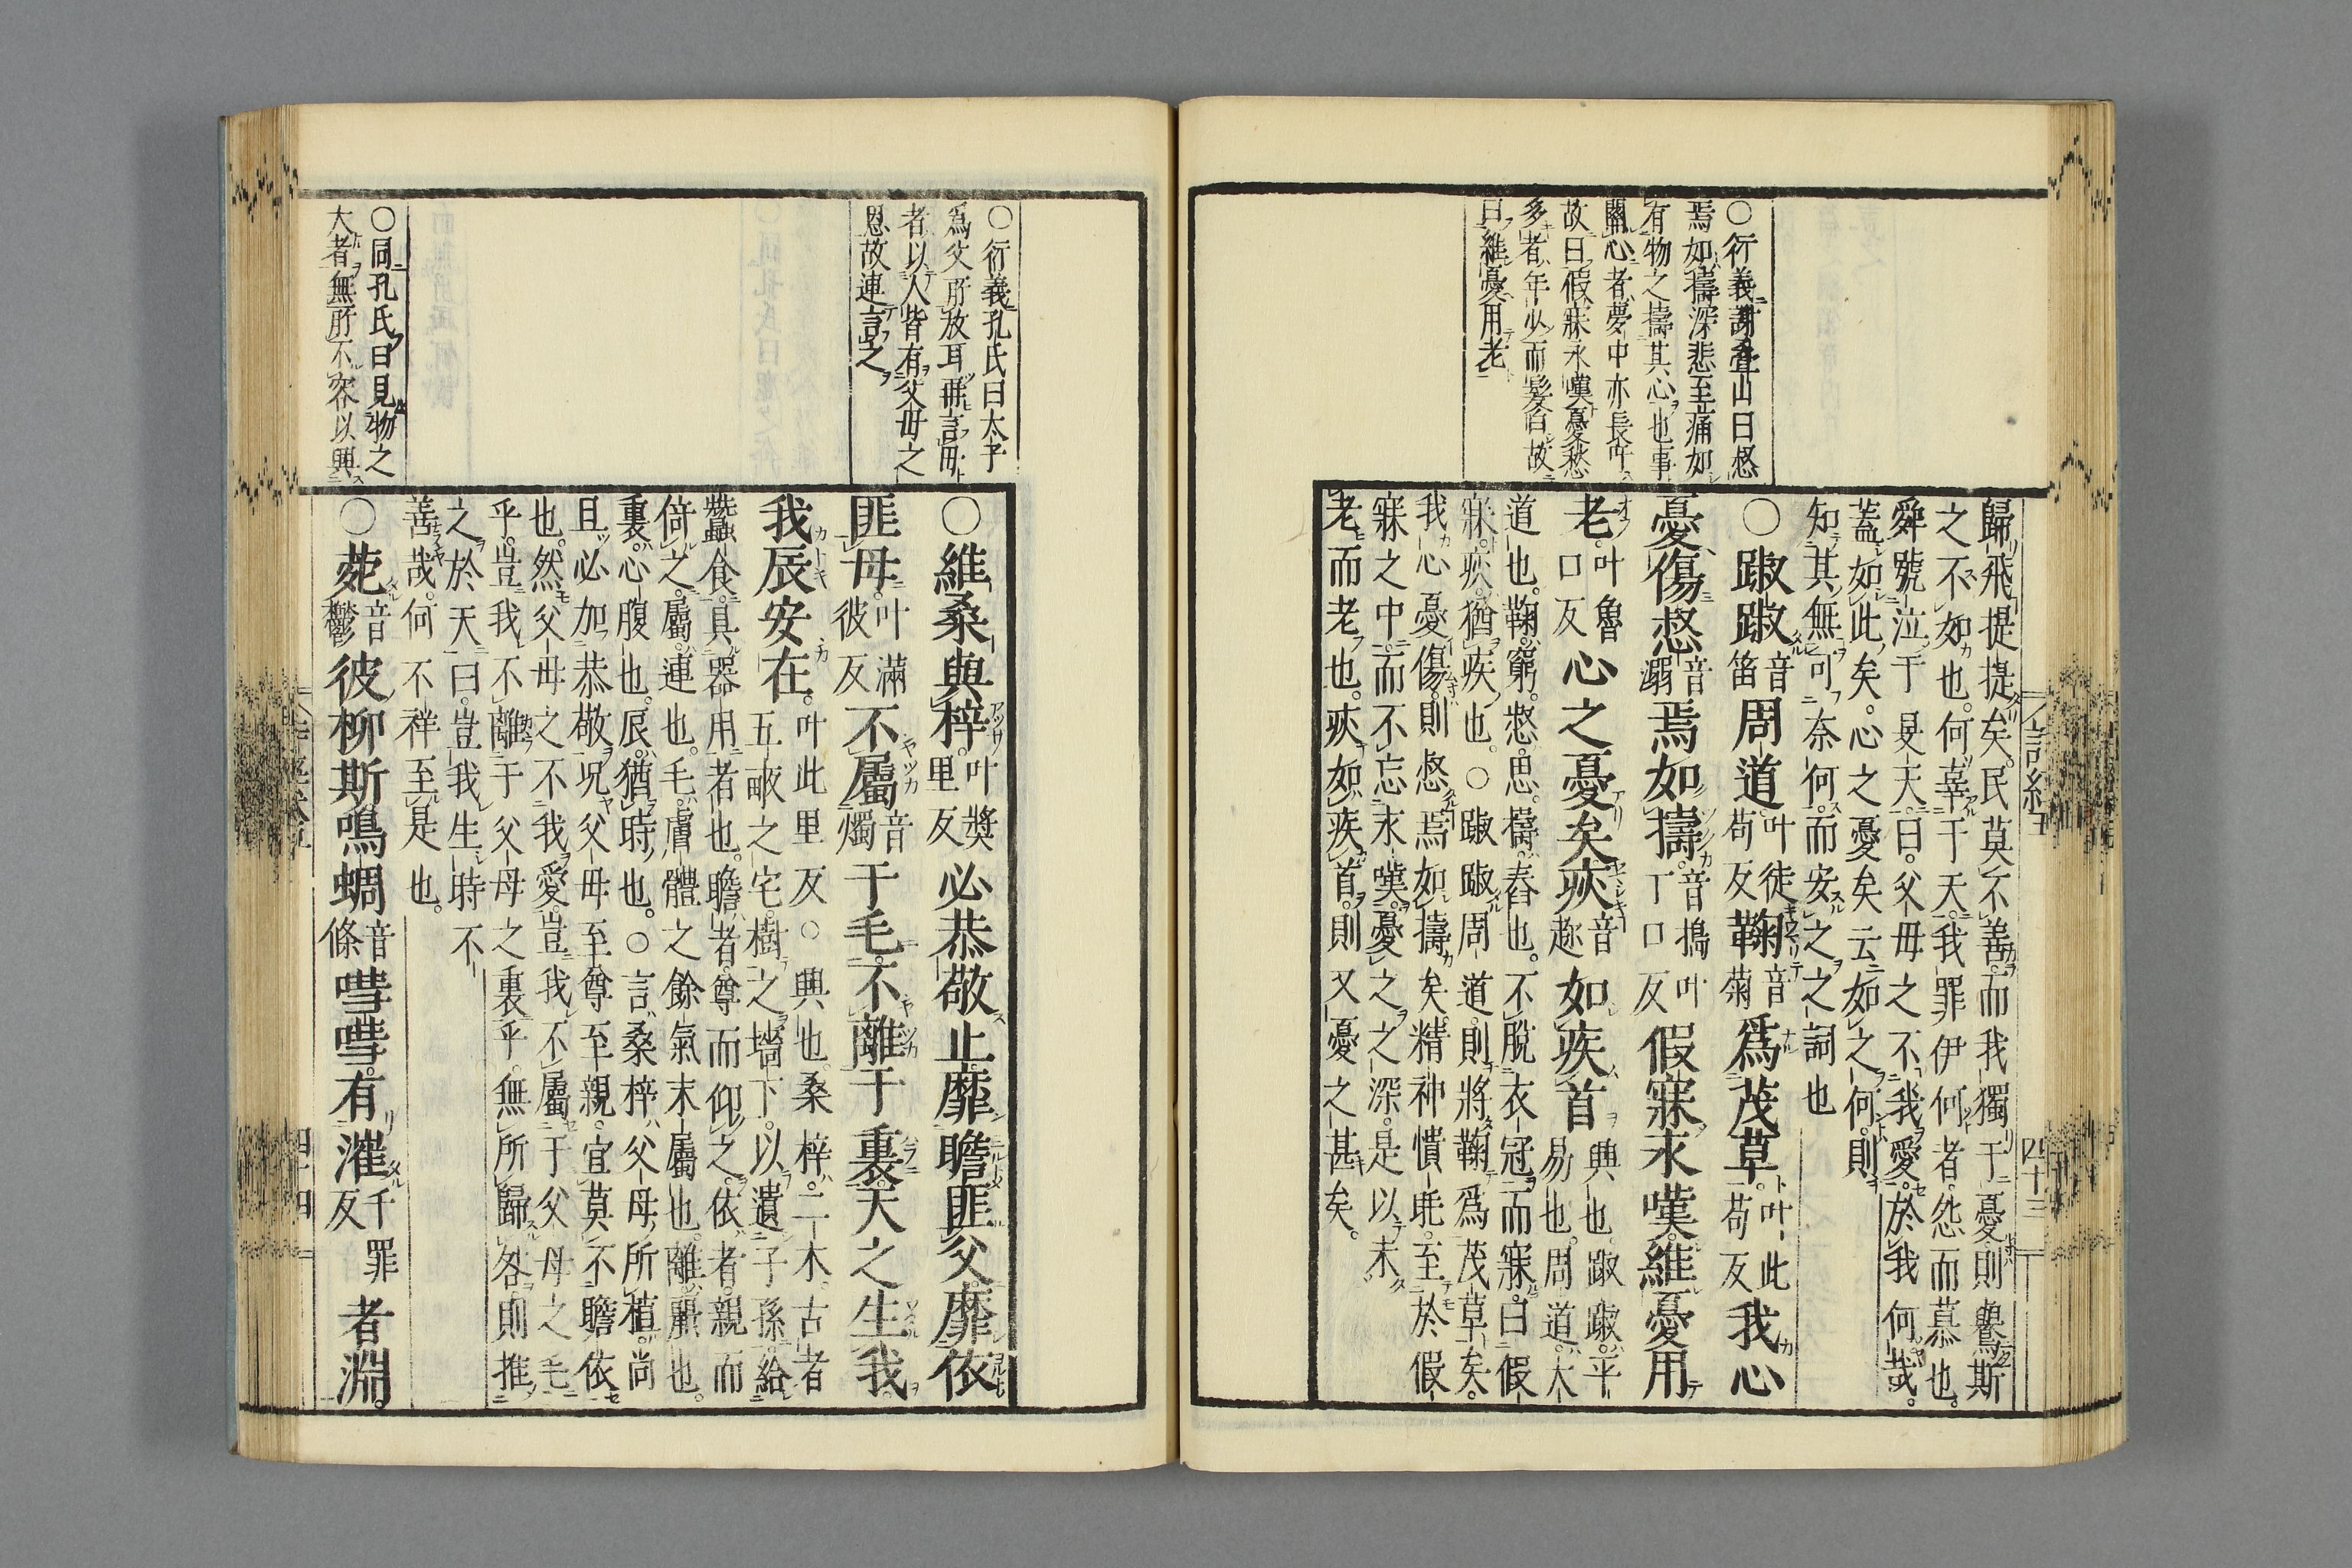 ○衍義謝疊山曰惄
焉如擣深悲至痛如
有物之擣其心也事
關心者夢中亦長吁
故曰假寐永嘆憂愁
多者年少而髮白故
曰維憂用老
歸飛提提矣。民莫不善。而我獨于憂。則鸒斯
之不如也。何辜于天。我罪伊何者。怨而慕也。
舜號泣于旻天。曰。父母之不我愛。於我何哉。
蓋如此矣。心之憂矣。云如之何。則
知其無可奈何。而安之之詞也
○踧踧音笛周道叶徒苟反鞫音菊爲茂草。叶此苟反我心
憂傷惄音溺焉如擣。音搗叶丁口反假寐永嘆。維憂用
老。叶魯口反心之憂矣疢音趂如疾首興也。踧踧。平易也。周道。大
道也。鞫。窮。惄。思。擣。舂也。不脫衣冠而寐。曰假
寐。疢。猶疾也。○踧踧周道。則將鞫爲茂草矣。
我心憂傷。則惄焉如擣矣。精神憒眊。至於假
寐之中。而不忘永嘆。憂之之深。是以未
老而老也。疢如疾首。則又憂之甚矣。
詩經五
四十三
○衍義孔氏曰太子
爲父所放耳毌言母
者以人皆有父母之
恩故連言之
○同孔氏曰見物之
大者無所不容以興
○維桑與梓。叶獎里反必恭敬止。靡瞻匪父。靡依
匪母。叶滿彼反不屬音燭于毛。不離于裏。天之生我。
我辰安在。叶此里反○興也。桑梓。二木。古者五畝之宅。樹之墻下。以遺子孫給
蠶食。具器用者也。瞻者。尊而仰之。依者。親而
倚之。屬。連也。毛。膚體之餘氣末屬也。離。麗也。
裏。心腹也。辰。猶時也。○言桑梓父母所植。尚
且必加恭敬。况父母至尊至親。宜莫不瞻依
也。然父母之不我愛。豈我不屬于父母之毛
乎。豈我不離于父母之裏乎。無所歸咎。則推
之於天曰。豈我生時不
善哉。何不祥至是也。
○菀音鬱彼柳斯。鳴蜩音條嘒嘒。有漼千罪反者淵。
四十四